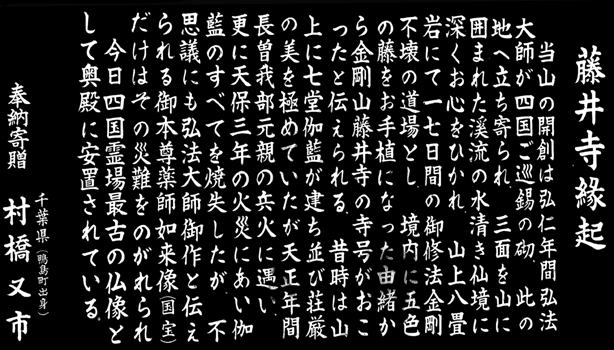 藤井寺緣起
当山の開創は弘仁年間弘法
大師が四国ご巡錫の砌 此の
地へ立ち寄られ 三面を山に
囲まれた渓流の水清き仙境に
深くお心をひかれ 山上八畳
岩にて一七日間の御修法金剛
不壊の道場とし 境内に五色
の藤をお手植になった由緒か
ら金剛山藤井寺の寺号がおこ
ったと伝えられる 昔時は山
上に七堂伽藍が建ち並び荘厳
の美を極めていたが天正年間
長曽我部元親の兵火に遇い
更に天保三年の火災にあい伽
藍のすべてを焼失したが 不
思議にも弘法大師御作と伝え
られる御本尊薬師如来像(国宝)
だけはその災難をのがれられ
今日四国霊場最古の仏像と
して奥殿に安置されている
奉納寄贈
千葉県(鴨島町出身)
村橋又市